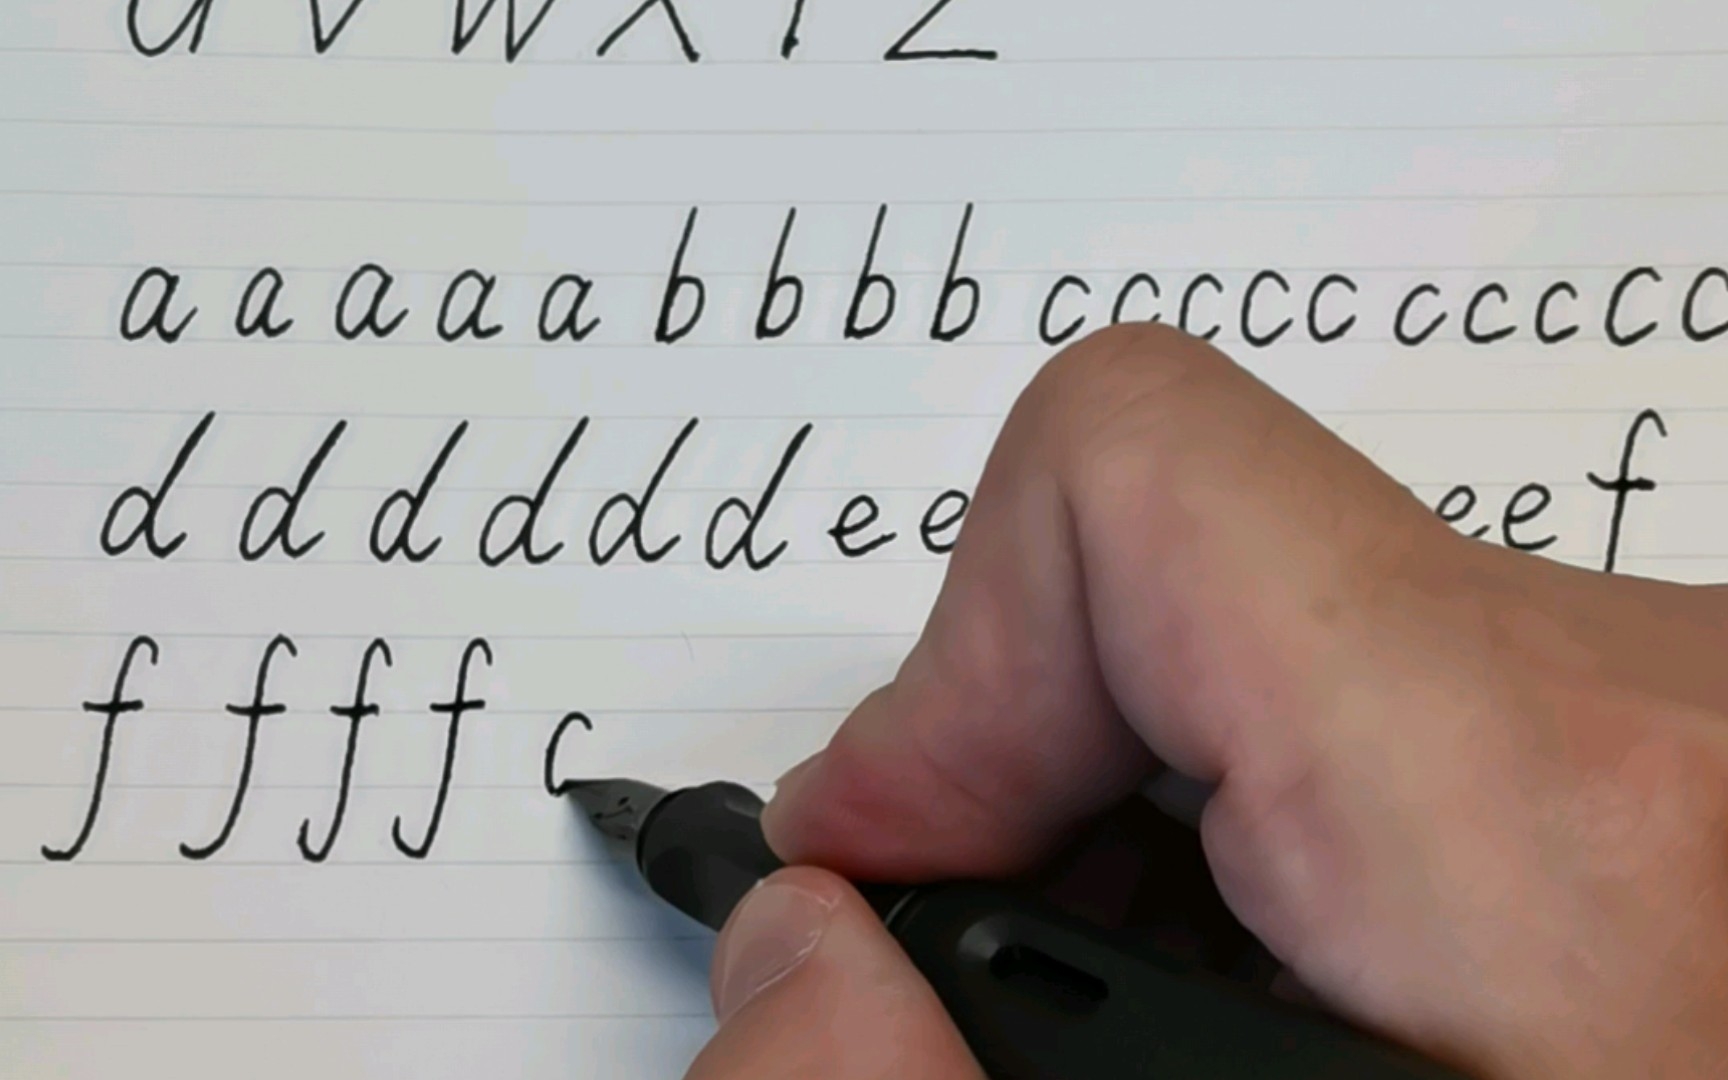 U V W X Y Z
a a a a a b b b b c c c c c c c c c c
d d d d d d e e e e f
f f f f c